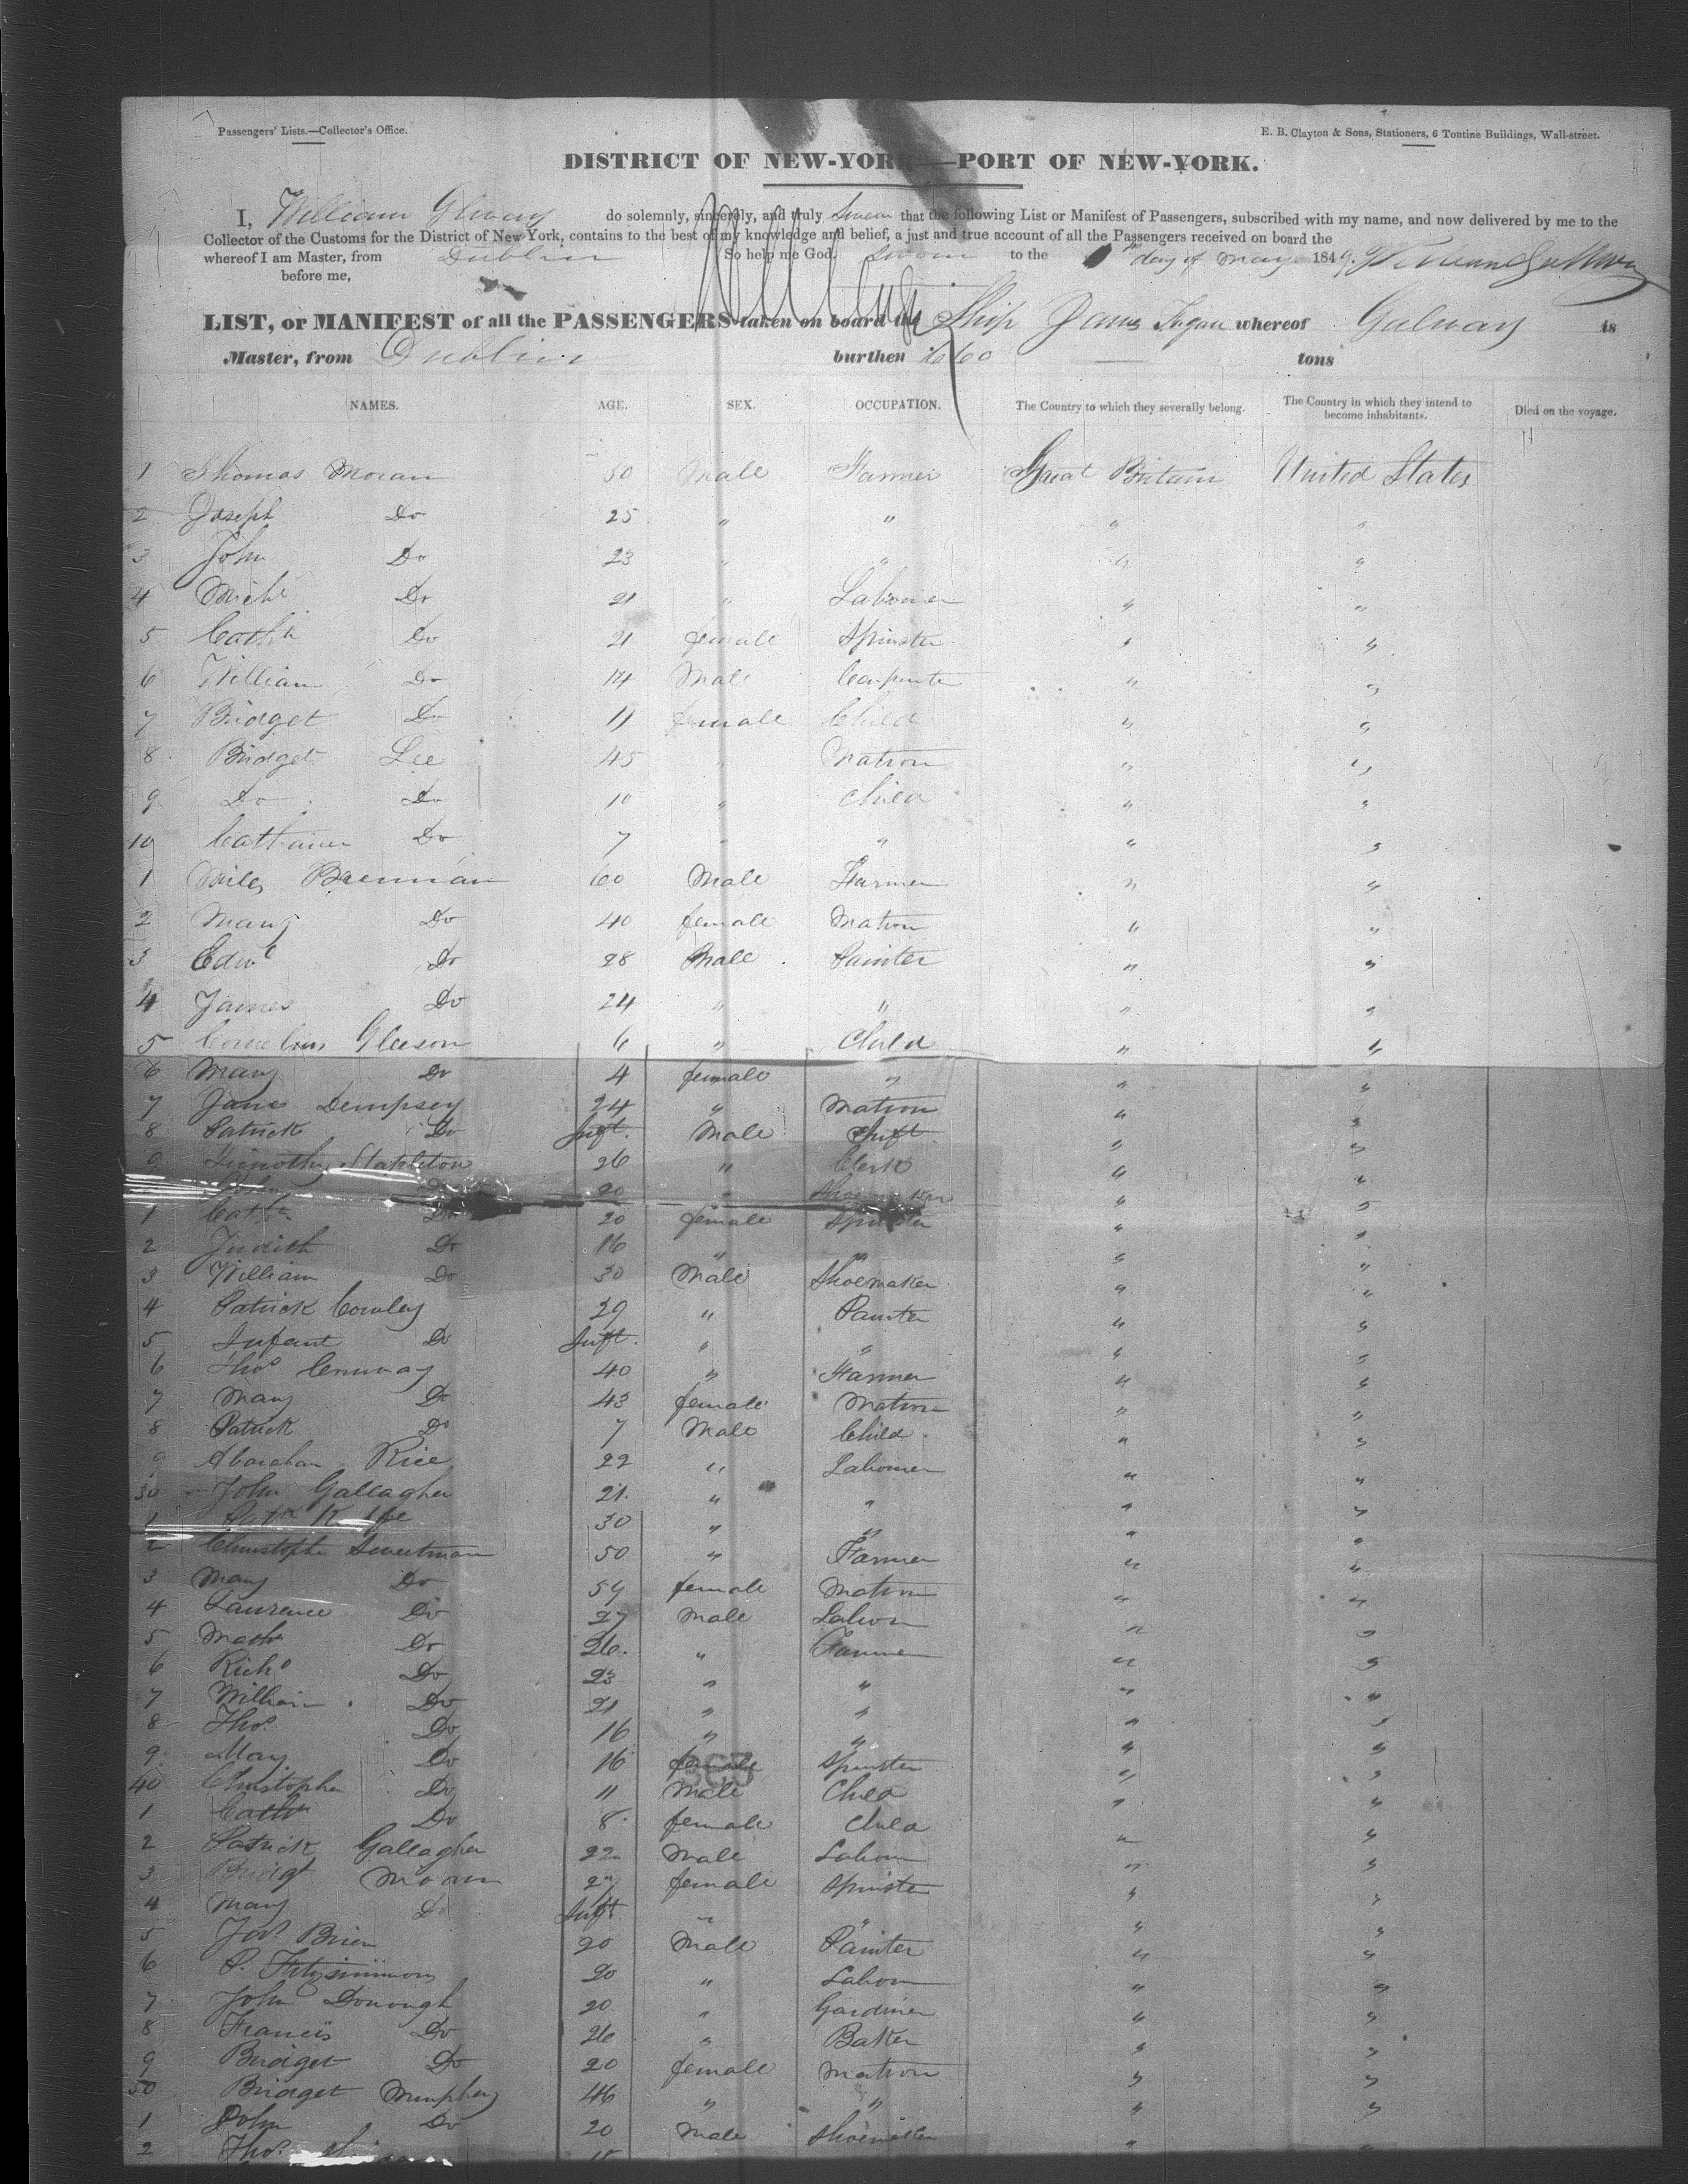 Passengers' Lists.—Collector's Office.
E. B. Clayton & Sons, Stationers, 6 Tontine Buildings, Wall-street.
DISTRICT OF NEW-YORK—PORT OF NEW-YORK.
I, William do solemnly, sincerely, and truly Swear that the following List or Manifest of Passengers, subscribed with my name, and now delivered by me to the
Collector of the Customs for the District of New York, contains to the best of my knowledge and belief, a just and true account of all the Passengers received on board the
whereof I am Master, from Dublin So help me God. Sworn to the day of May 1849.
before me,
LIST, or MANIFEST of all the PASSENGERS taken on board the Ship James Fagan whereof Galway is
Master, from Dublin burthen 660 tons
NAMES. AGE. SEX. OCCUPATION. The Country to which they severally belong. The Country in which they intend to become inhabitants. Died on the voyage.
1 Thomas Moran 50 Male Farmer Great Britain United States
2 Joseph Do 25 " " " "
3 John Do 23 " " " "
4 Michl Do 21 " Labourer " "
5 Cath Do 21 female Spinster " "
6 William Do 14 Male Carpenter " "
7 Bridget Do 11 female Child " "
8 Bridget Lee 45 " Matron " "
9 Do Do 10 " Child " "
10 Catharine Do 7 " " " "
1 Miles Brennan 60 Male Farmer " "
2 Mary Do 40 female Matron " "
3 Edwd Do 28 Male Painter " "
4 James Do 24 " " " "
5 Cornelius Gleeson 6 " Child " "
6 Mary Do 4 female " " "
7 Jane Dempsey 24 " Matron " "
8 Patrick Do Inft. Male Inft. " "
9 Timothy Stapleton 26 " Clerk " "
John Do 20 " " "
1 Cath Do 20 female Spinster " "
2 Judith Do 16 " " " "
3 William Do 30 Male Shoemaker " "
4 Patrick Conley 29 " Painter " "
5 Infant Do Inft. " " " "
6 Thos Conway 40 " Farmer " "
7 Mary Do 43 female Matron " "
8 Patrick Do 7 Male Child " "
9 Abraham Rice 22 " Labourer " "
30 John Gallagher 21 " " " "
1 Patk 30 " " " "
2 Christophr Sweetman 50 " Farmer " "
3 Mary Do 59 female Matron " "
4 Laurence Do 27 Male Labour " "
5 Do 26 " Farmer " "
6 Richd Do 23 " " " "
7 William Do 21 " " " "
8 Thos Do 16 " " " "
9 Mary Do 16 female Spinster " "
40 Christopher Do 11 Male Child " "
1 Cath Do 8 female Child " "
2 Patrick Gallagher 22 Male Labour " "
3 Bridgt Moran 27 female Spinster " "
4 Mary Do Inft " " " "
5 Jos. Brien 20 Male Painter " "
6 P. Fitzsimmons 20 " Labour " "
7 John Donough 20 " Gardiner " "
8 Francis Do 26 " Baker " "
9 Bridget Do 20 female Matron " "
50 Bridget Murphey 46 " " " "
1 John Do 20 Male Shoemaker " "
2 Thos. 18 " "